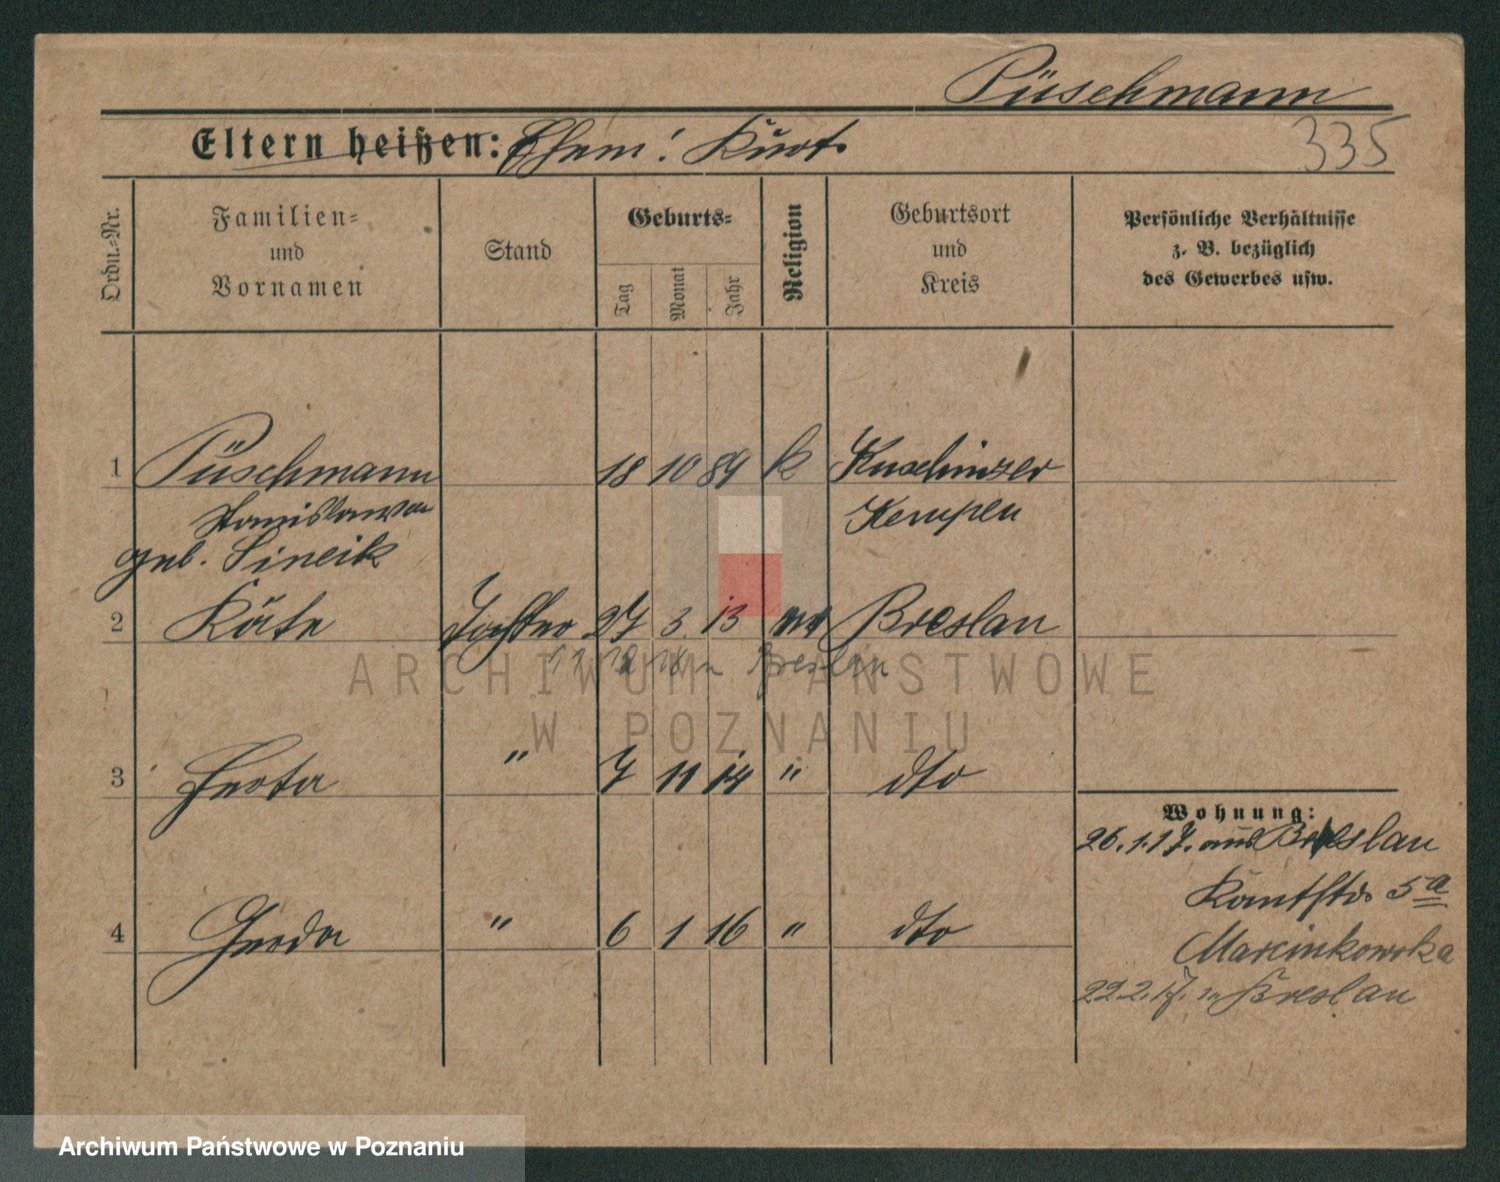 Püschmann
Eltern heißen: Ehem: Kurt
335
Ordn.-Nr.
Familien-
und
Vornamen
Stand
Geburts-
Tag
Monat
Jahr
Religion
Geburtsort
und
Kreis
Persönliche Verhältnisse
z. B. bezüglich
des Gewerbes usw.
1 Püschmann 18 10 89 k
Stanislawa Kempen
geb.
2 Käte Tochter 27 3 13 Breslau
Breslau
3 Herta " 7 11 14 " dto
4 Gerda " 6 1 16 " dto
Wohnung:
26.1.17. aus Breslau
Kantstr. 5a
Marcinkowska
22.2.17. n Breslau
ARCHIWUM PAŃSTWOWE
W POZNANIU
Archiwum Państwowe w Poznaniu